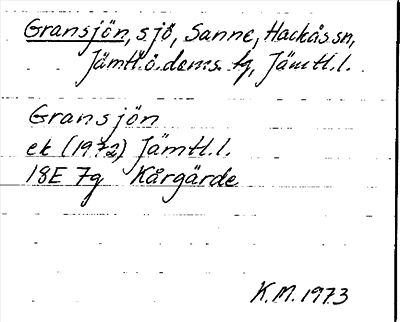 Gransjön, sjö, Sanne, Hackås sn,
Jämtl.ö.doms. tg, Jämtl.l.
Gransjön
ek (1972) Jämtl.l.
18E 7g Kårgärde
K.M. 1973